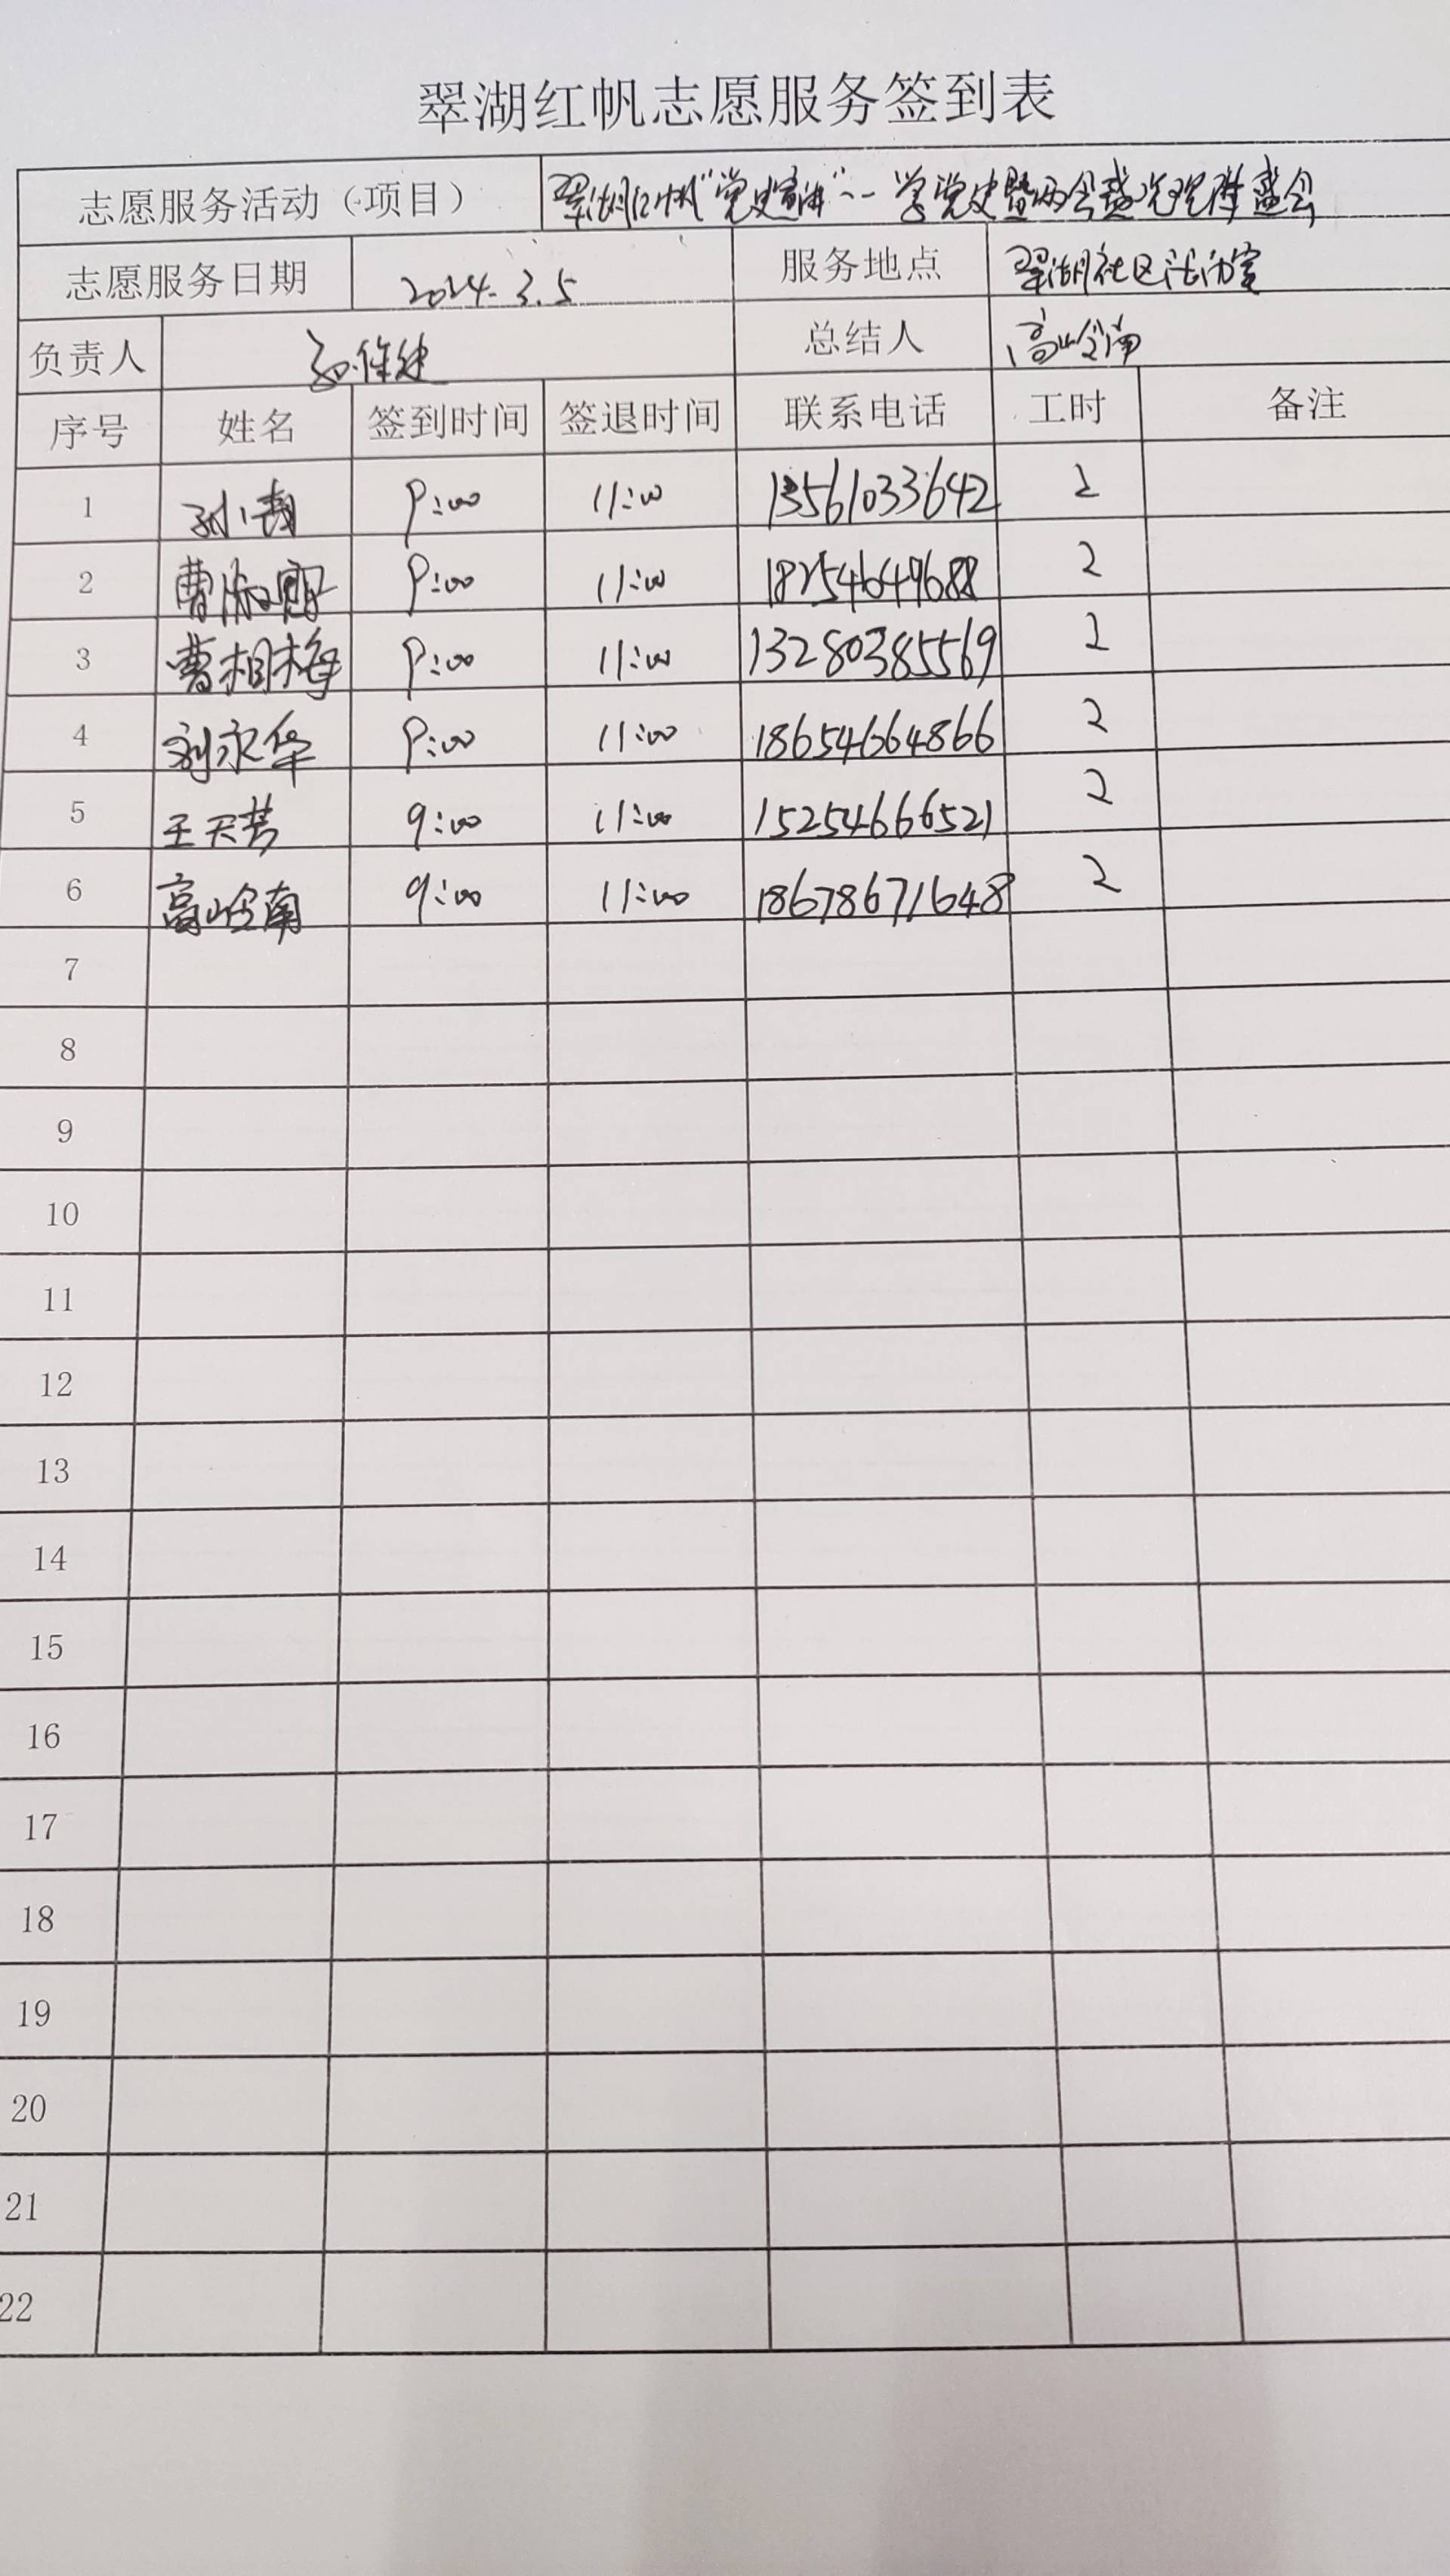 翠湖红帆志愿服务签到表
志愿服务活动（项目） 翠湖红帆“党史宣讲”-- 学党史暨两会盛况观群盛会
志愿服务日期 2024.3.5 服务地点 翠湖社区活动室
负责人 总结人 高岭南
序号 姓名 签到时间 签退时间 联系电话 工时 备注
1 9:00 11:00 13561033642 2
2 曹 9:00 11:00 18254649688 2
3 曹相梅 9:00 11:00 13280385569 2
4 刘永华 9:00 11:00 18654664866 2
5 王天梦 9:00 11:00 15254666521 2
6 高岭南 9:00 11:00 18678671648 2
7
8
9
10
11
12
13
14
15
16
17
18
19
20
21
22